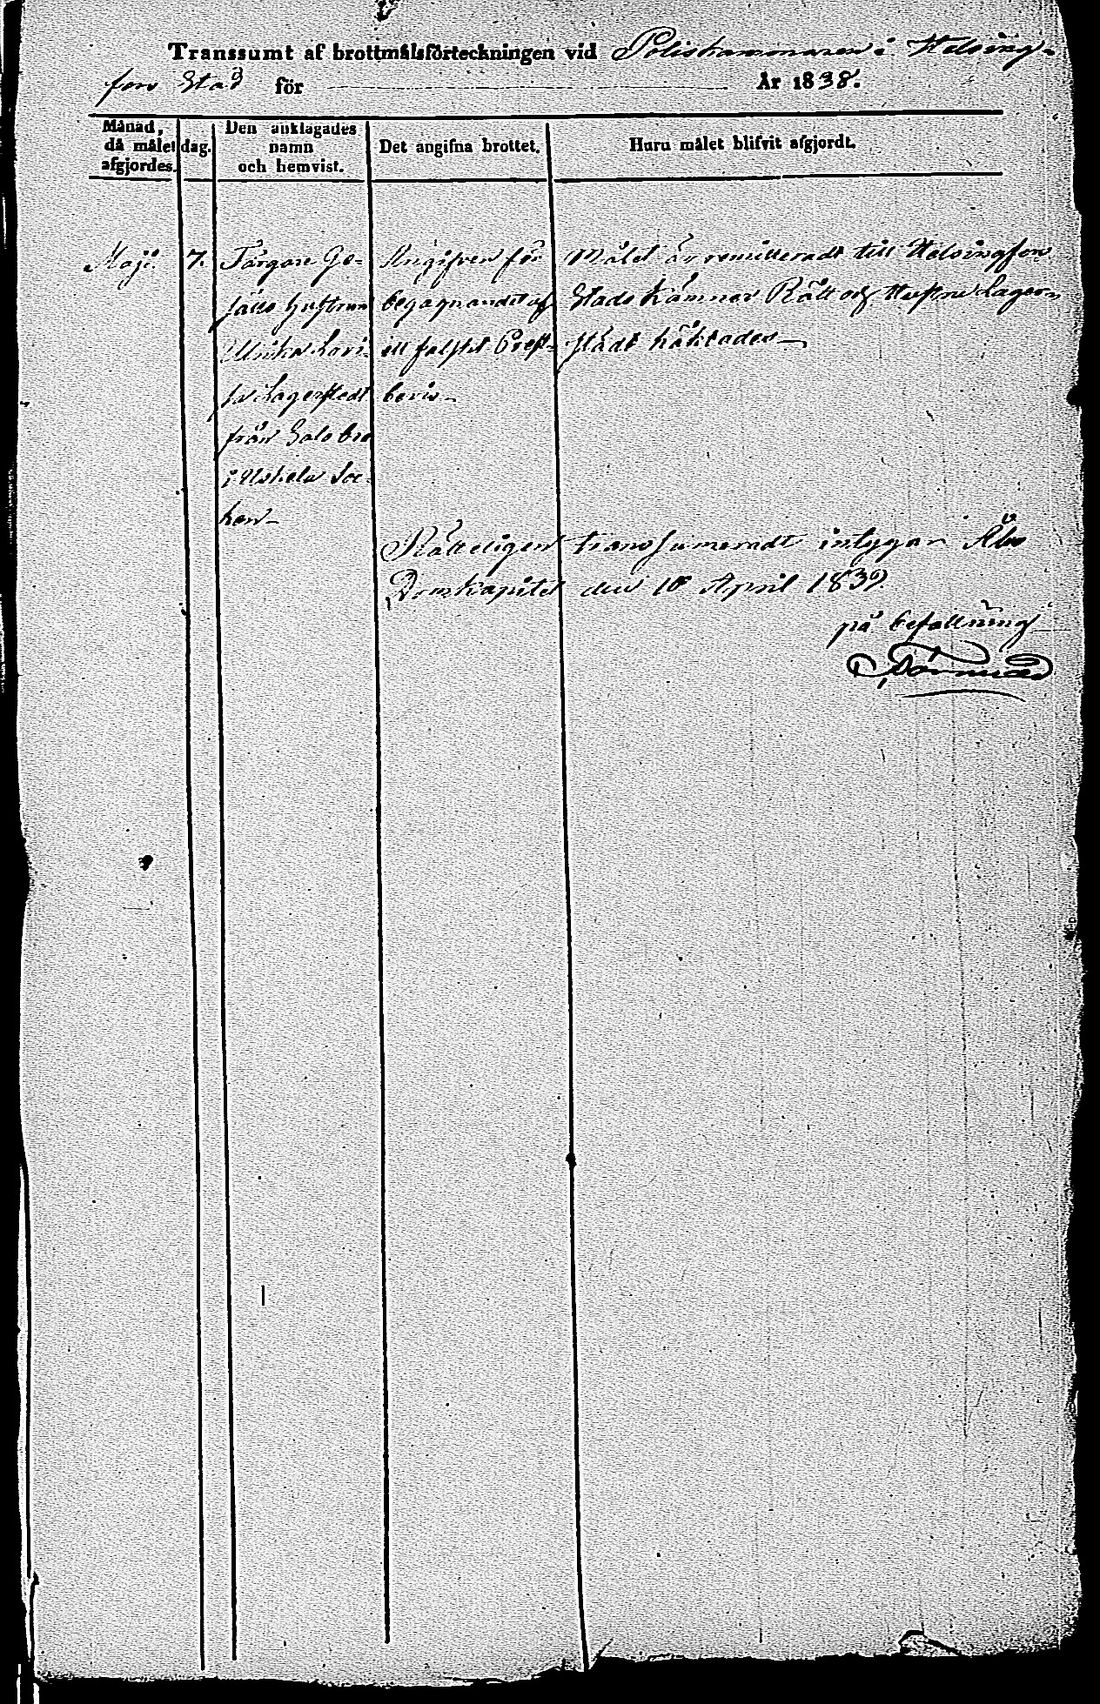 Transsumt af brottmålsförteckningen vid Poliskammaren i Helsing-
fors Stad för År 1838.
Månad, då målet afgjordes.
dag.
Den anklagades namn och hemvist.
Det angifna brottet.
Huru målet blifvit afgjordt.
Maji
7.
Färgare Ge-
sälls hustrun
Ulrika Lovi-
sa Lagerstedt
från Salo bro
i Uskela Soc-
ken
Angifven för
begagnandet af
ett falskt Prest-
bevis
Målet är remitteradt till Helsingfors
Stads Kämners Rätt och Hustru Lager-
städt häktades
Rätteligen transsumeradt intygar Åbo
Domkapitel den 10 April 1839
på befallning